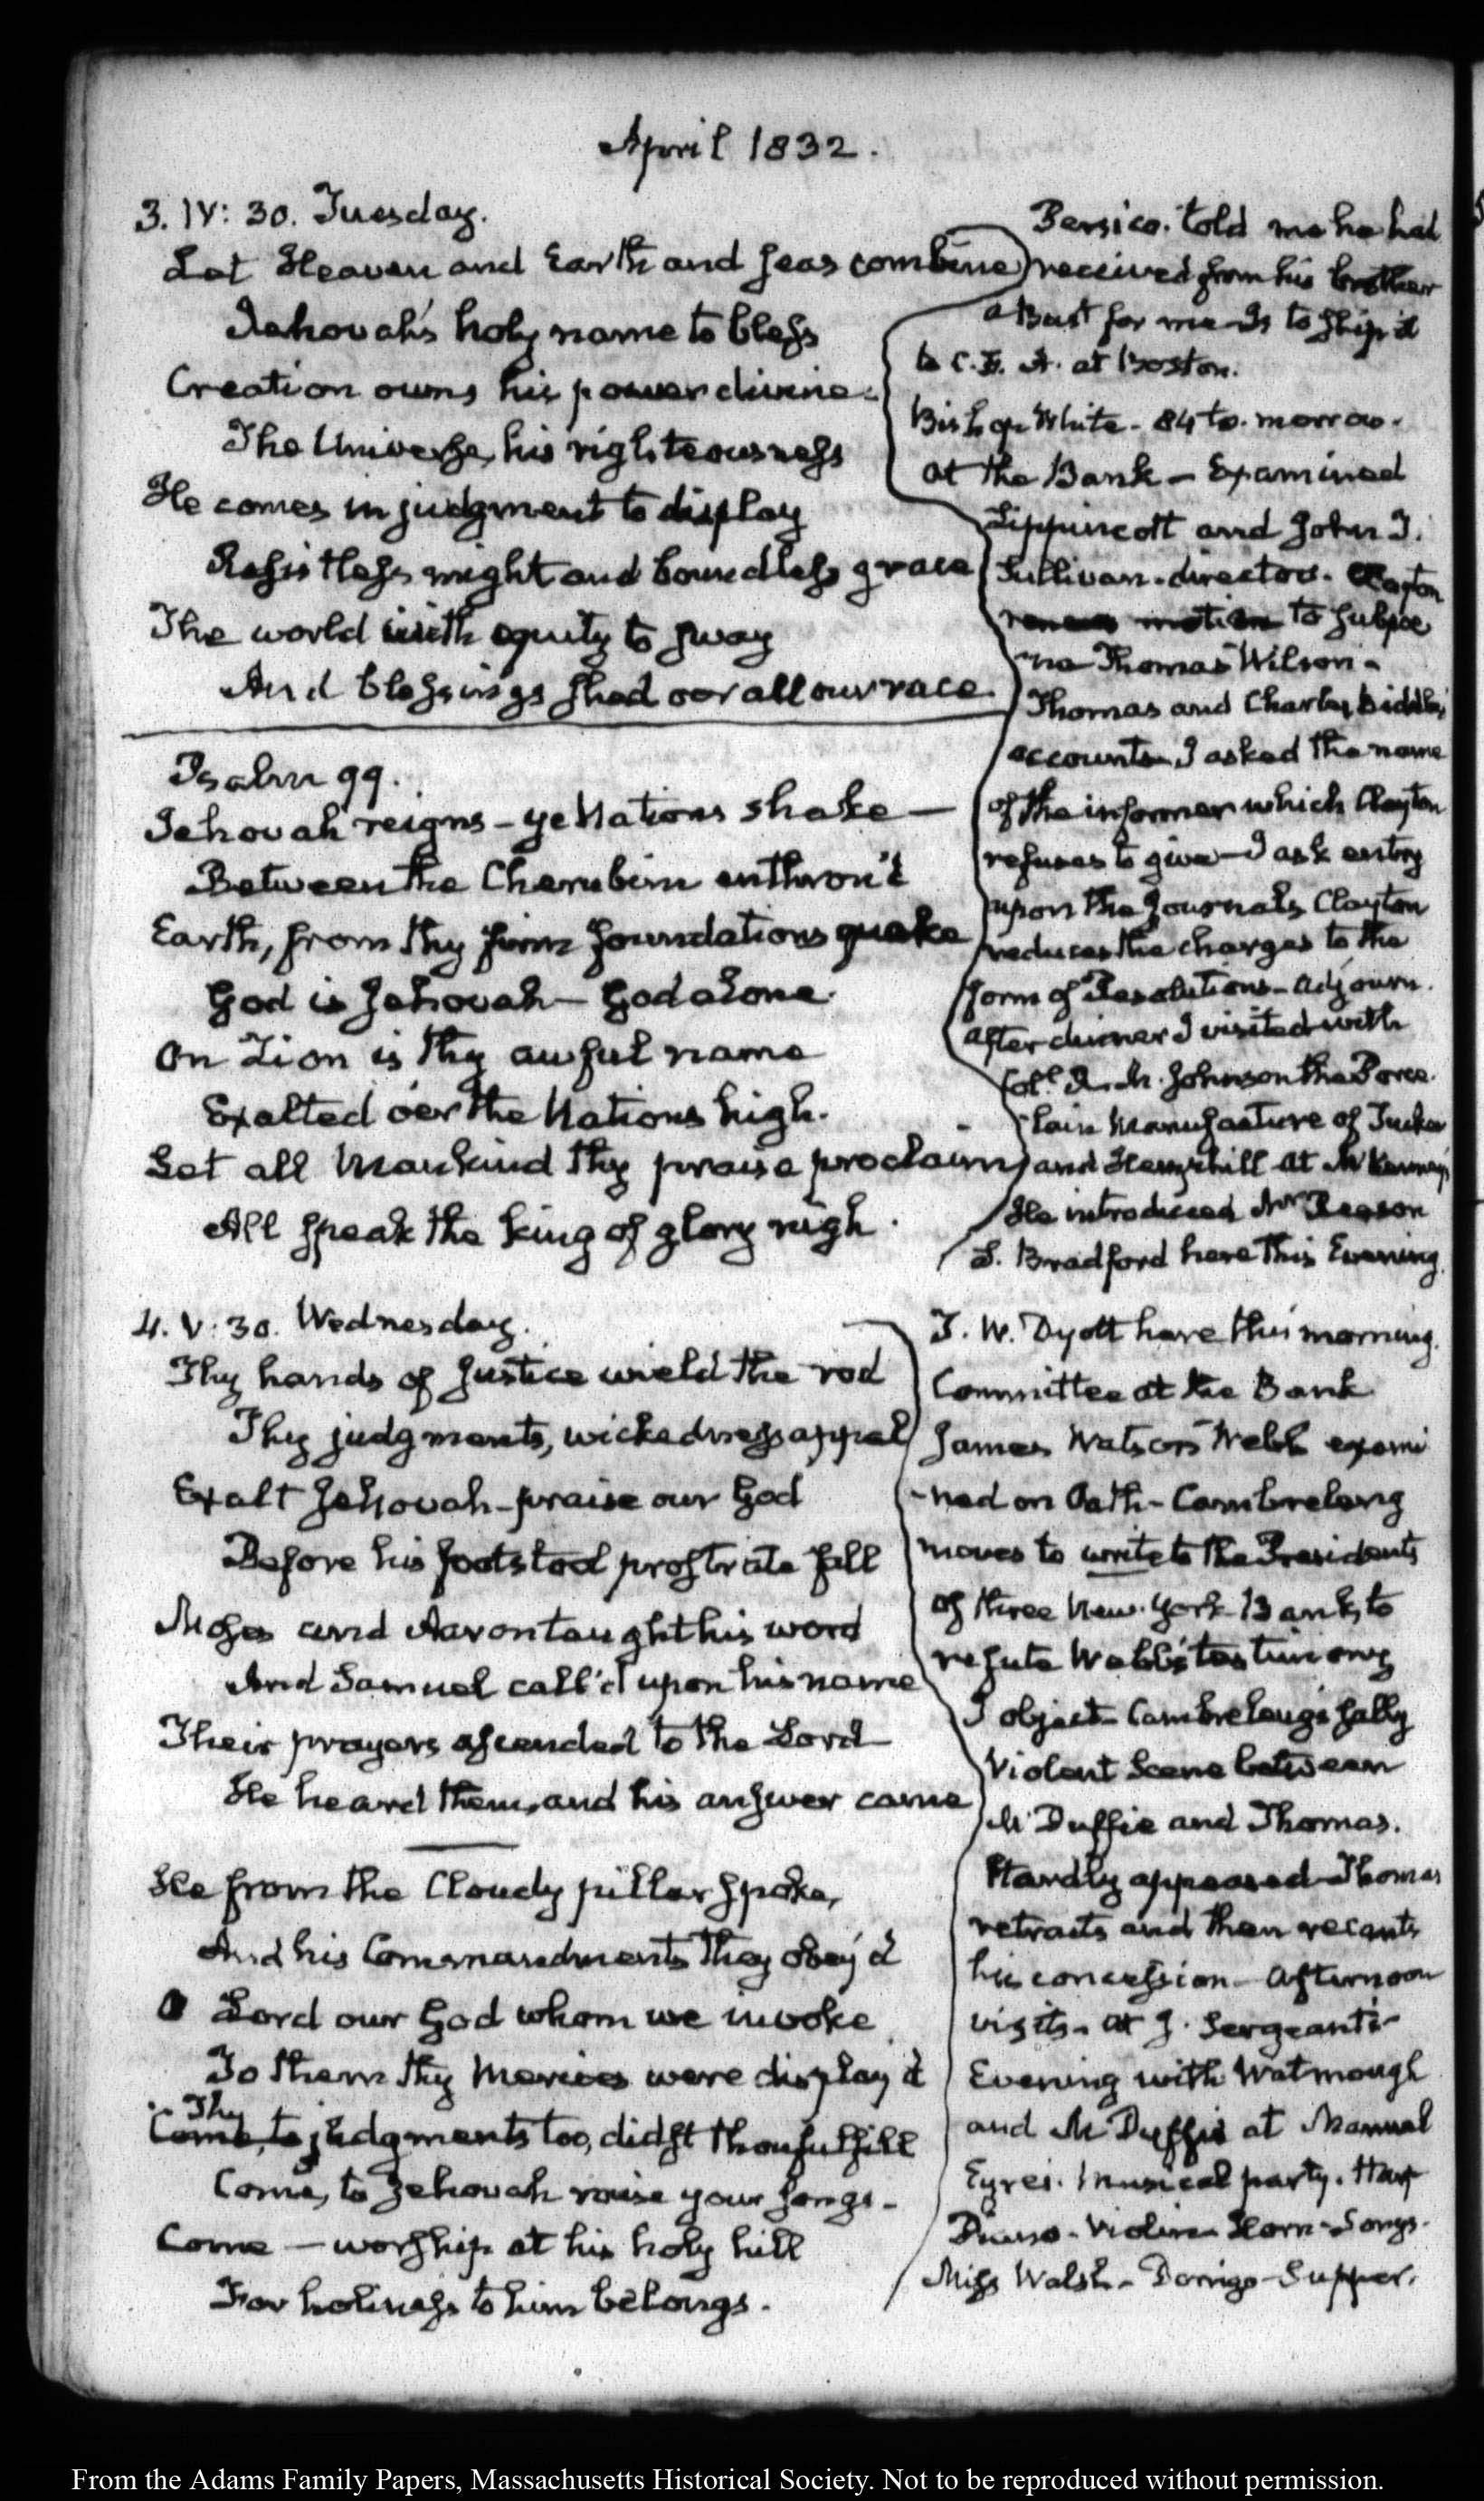 April 1832.
3. IV: 30. Tuesday.
Let Heaven and Earth and Seas combine
Jehovah's holy name to bless
Creation owns his power divine
The Universe, his righteousness
He comes in judgment to display
Resistless might and boundless grace
The world with equity to sway
And blessings shed oer all our race.
Psalm 99.
Jehovah reigns - ye Nations shake —
Between the Cherubim enthron'd
Earth, from thy firm foundations quake
God is Jehovah - God alone.
On Zion is thy awful name
Exalted o'er the Nations high.
Let all Mankind thy praise proclaim
All speak the king of glory nigh.
Persico. told me he had
received from his brother
a Bust for me Is to ship it
to C. F. A. at Boston.
Bishop White - 84 to-morrow.
at the Bank - Examined
Lippincott and John T.
Sullivan - directors. Clayton
renews motion to subpoe
-na Thomas Wilson -
Thomas and Charles Biddle's
accounts - I asked the name
of the informer which Clayton
refuses to give - I ask entry
upon the Journals Clayton
reduces the charges to the
form of Resolutions - adjourn.
after dinner I visited with
Coll. R. M. Johnson the Porce-
-lain Manufacture of Tucker
and Hemphill at
He introduced Mr
S. Bradford here this Evening.
4. V: 30. Wednesday.
Thy hands of Justice wield the rod
Thy judgments, wickedness appal
Exalt Jehovah - praise our God
Before his footstool prostrate fall
Moses and Aaron taught his word
And Samuel call'd upon his name
Their prayers ascended to the Lord
He heard them, and his answer came
He from the Cloudy pillar spoke,
And his Commandments they obey'd
O Lord our God whom we invoke
To them thy Mercies were display'd
Thy
Come, to judgments too, didst thou fulfill
Come, to Jehovah raise your songs -
Come — worship at his holy hill
For holiness to him belongs.
T. W. Dyott here this morning.
Committee at the Bank
James Watson Webb exami
-ned on Oath - Cambreleng
moves to write to the Presidents
of three New-York Banks, to
refute Webb's testimony
I object - Cambreleng's sally
Violent Scene between
McDuffie and Thomas.
Hardly appeased - Thomas
retracts and then recants
his concession - Afternoon
visits - at J. Sergeant's
Evening with Watmough
and McDuffie at Manuel
Eyre's. Musical party. Harp
Piano - Violin - Horn - Songs.
Miss Walsh - Supper.
From the Adams Family Papers, Massachusetts Historical Society. Not to be reproduced without permission.